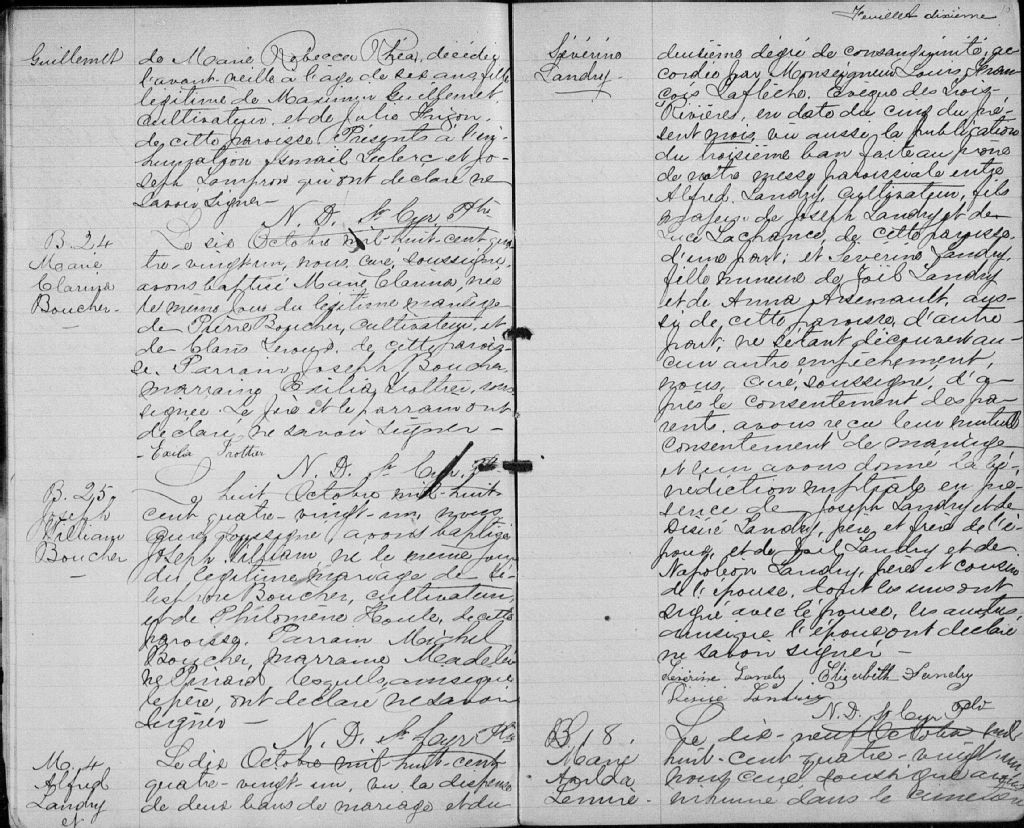 Guillemet
de Marie Rebecca Rhéa, décédée
l'avant veille à l'age de six ans, fille
légitime de Maxime Guillemet,
cultivateur, et de Julie Frigon,
de cette paroisse. Présents à l'in-
humation Ismael Leclerc et Jo-
seph Lampron qui ont déclaré ne
savoir signer -
N. D. St Cyr Ptre
B. 24
Marie
Clarina
Boucher -
Le six Octobre mil-huit-cent-qua-
tre-vingt-un, nous, curé, soussigné,
avons baptisé Marie Clarina, née
le même jour du légitime mariage
de Pierre Boucher, cultivateur, et
de Claris Leroux, de cette parois-
se. Parrain Joseph Boucher,
marraine Exilia Trottier, sous
signée. Le père et le parrain ont
déclaré ne savoir signer -
- Exilia Trottier
N. D. St Cyr, Ptre
B. 25
Joseph
William
Boucher
Le huit Octobre mil-huit
cent quatre-vingt-un, nous
Curé soussigné, avons baptisé
Joseph William né le même jour
du légitime mariage de Cé-
lestin Boucher, cultivateur,
et de Philomène Houle, de cette
paroisse. Parrain Michel
Boucher, marraine Madelei
ne Pinard lesquels, ainsi que
le père, ont déclaré ne savoir
signer -
N. D. St Cyr Ptre
M. 4
Alfred
Landry
et
Le dix Octobre mil huit-cent
quatre-vingt-un, vu la dispense
de deux bans de mariage et du
Feuillet dixième
Séverine
Landry -
deuxième dégré de consanguinité, ac
cordée par Monseigneur Louis Fran
çois Laflèche, Evêque des Trois-
Rivières, en date du cinq du pré-
sent mois, vu aussi la publication
du troisième ban faite au prône
de notre messe paroissiale entre
Alfred Landry, cultivateur, fils
majeur de Joseph Landry et de
Luce Lafrance, de cette paroisse,
d'une part; et Severine Landry,
fille mineure de Joël Landry
et de Anna Arsenault, aus-
si de cette paroisse, d'autre
part, ne s'étant découvert au-
cun autre empêchement,
nous, Curé, soussigné, d'a-
près le consentement des pa-
rents, avons reçu leur mutuel
consentement de mariage
et leur avons donné la bé-
nédiction nuptiale en pré-
sence de Joseph Landry et de
Désiré Landry, père, et frère de l'é-
poux, et de Joël Landry et de
Napoléon Landry, père et cousin
de l'épouse, dont les uns ont
signé avec l'épouse, les autres
ainsi que l'époux ont déclaré
ne savoir signer -
Séverine Landry Elizabeth Landry
Désiré Landry
N. D. St Cyr Ptre
B. 18.
Marie
Lemire -
Le dix-neuf Octobre mil
huit-cent quatre-vingt un,
nous, curé soussigné avons
inhumé dans le cimetière